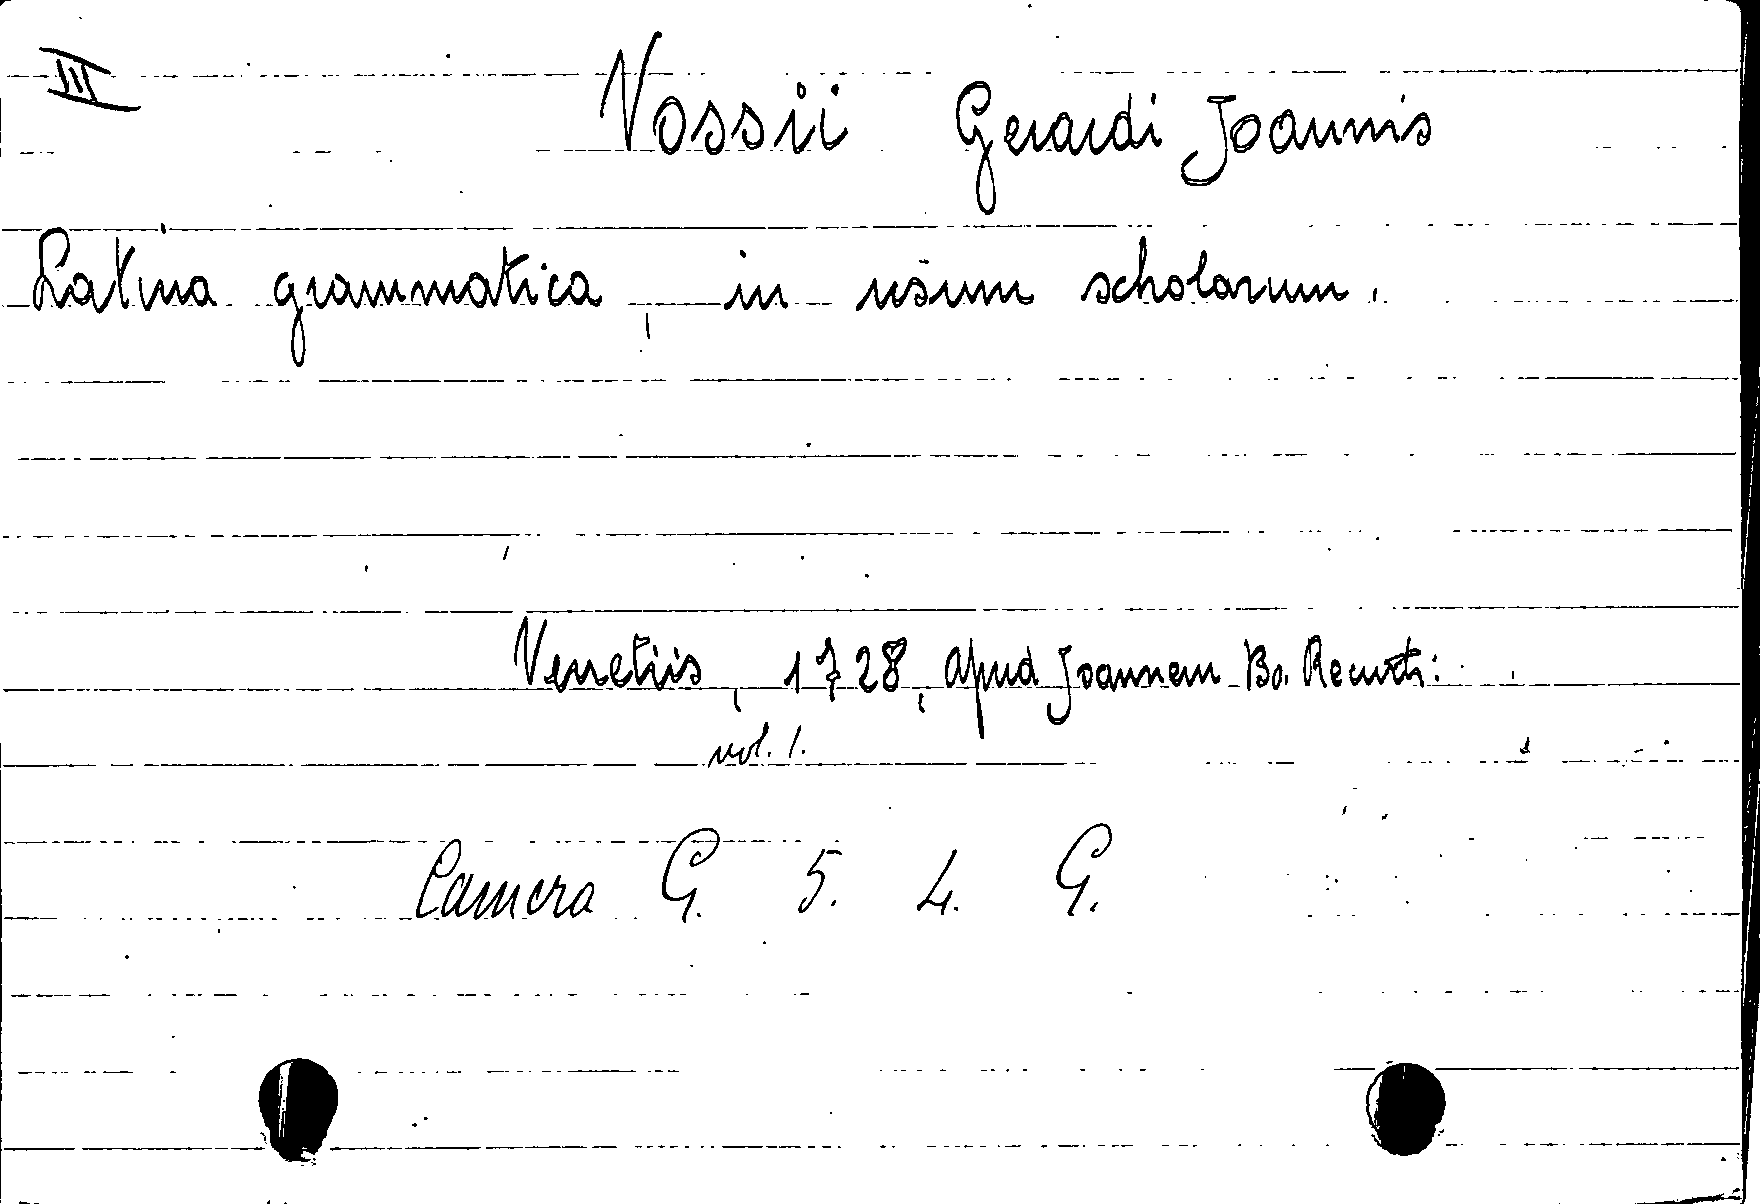 III
Vossii Gerardi Joannis
Latina grammatica, in usum scholarum.
Venetiis, 1728, apud Joannem Ba. Recurti:
vol. 1.
Camera G. 5. 4. G.